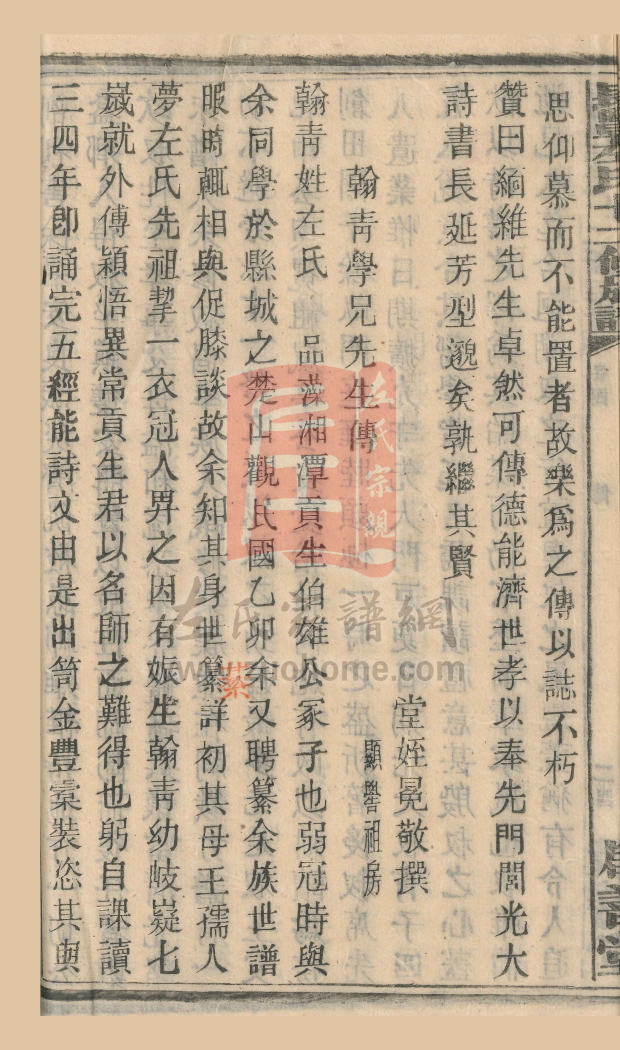 思仰慕而不能置者故樂爲之傳以誌不朽
贊曰緬維先生卓然可傳德能濟世孝以奉先門閭光大
詩書長延芳型邈矣孰繼其賢
堂姪冕敬撰
翰靑學兄先生傳 顯嚳祖房
翰靑姓左氏 品藻湘潭貢生伯雄公冢子也弱冠時與
余同學於縣城之楚山觀民國乙卯余又聘纂余族世譜
暇時輒相與促膝談故余知其身世纂詳初其母王孺人
夢左氏先祖挈一衣冠人畀之因有娠生翰靑幼岐嶷七
歲就外傅穎悟異常貢生君以名師之難得也躬自課讀
三四年卽誦完五經能詩文由是出笥金豐橐裝恣其與
綦
左氏宗親
左氏家譜網
www.zuohome.com